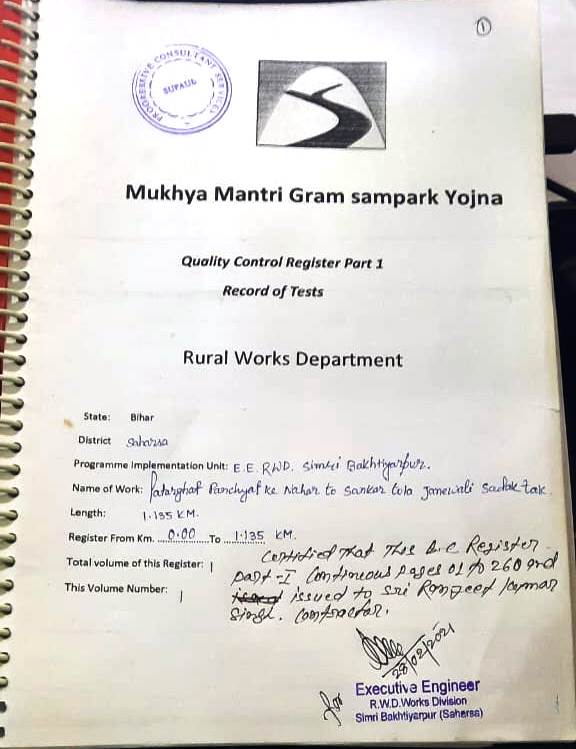 1
PROGRESSIVE CONSULTANT SERVICES
SUPAUL
Mukhya Mantri Gram sampark Yojna
Quality Control Register Part 1
Record of Tests
Rural Works Department
State: Bihar
District Saharsa
Programme Implementation Unit: E.E. RWD. Simri Bakhtiyarpur.
Name of Work: Patarghat Panchyat ke Nahar to Sankar tola Janewali Sadak tak.
Length: 1.135 KM.
Register From Km. 0.00 To 1.135 KM.
Total volume of this Register: 1
This Volume Number: 1
Certified that this Q.C Register
part-I Continuous pages 01 to 260 and
issued to Sri Ranjeet Kumar
Singh. Contractor.
28/02/2021
Executive Engineer
R.W.D.Works Division
Simri Bakhtiyarpur (Sahersa)